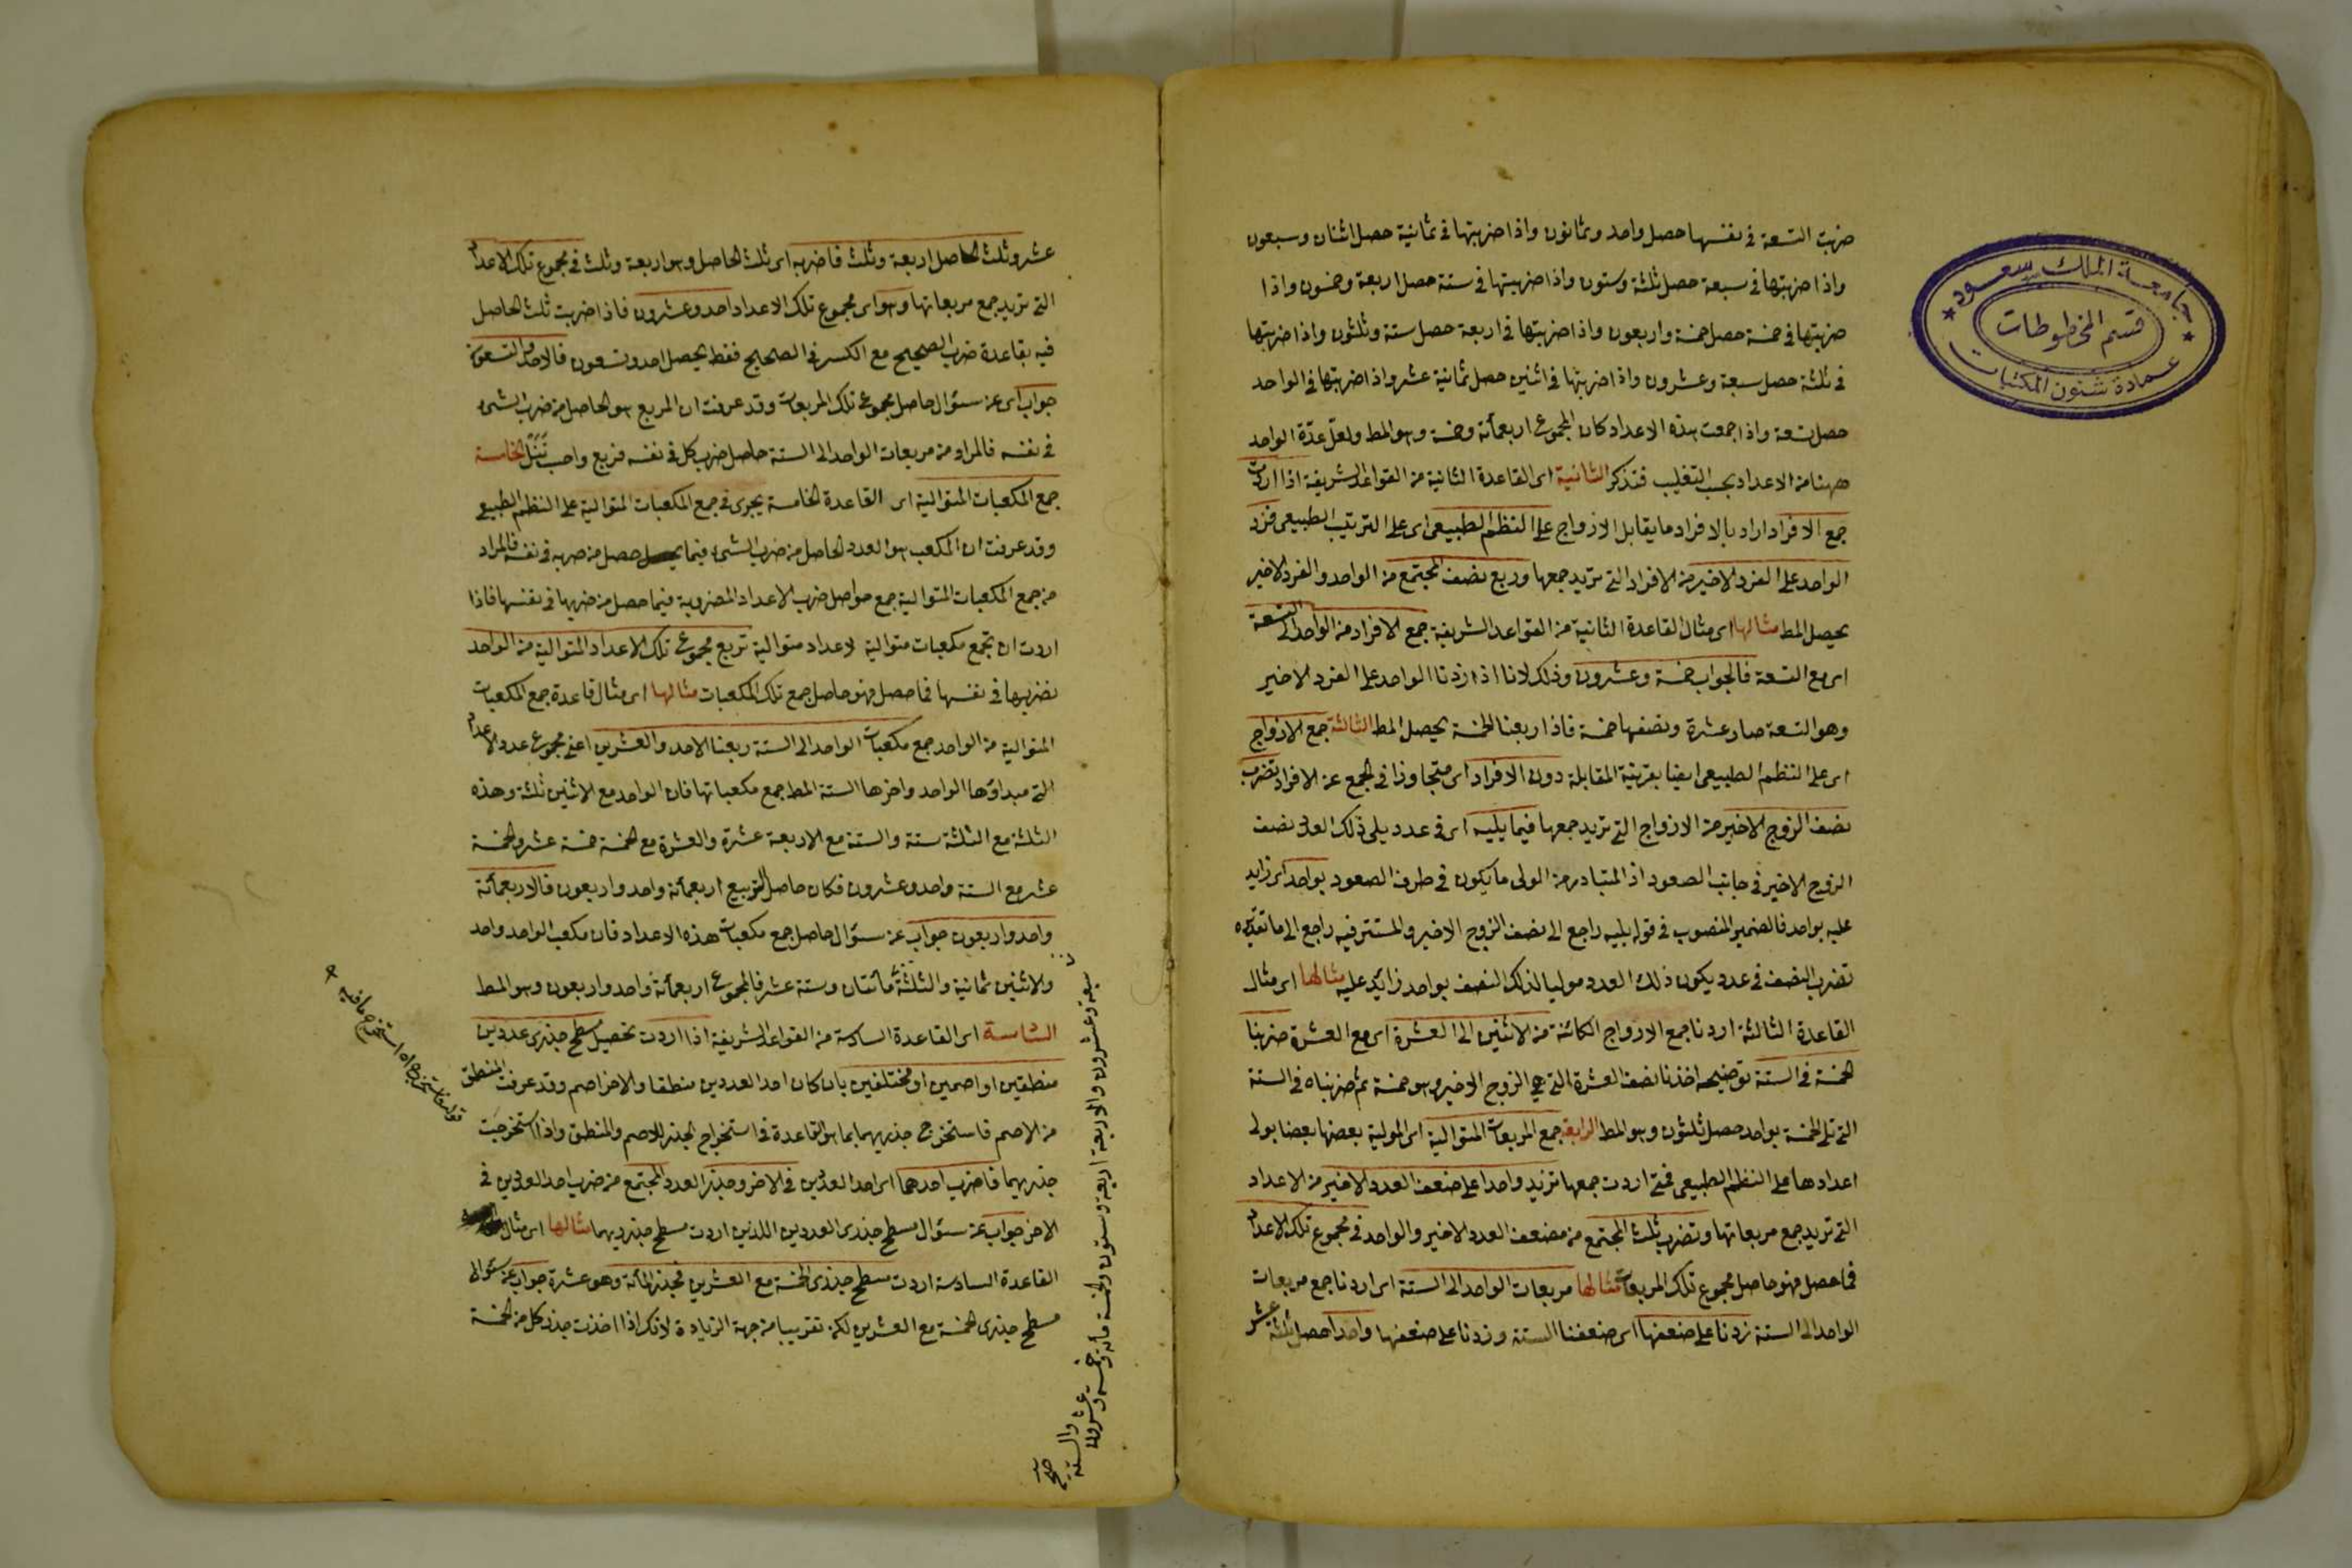 ضربت التسعة فى نفسها حصل واحد وثمانون واذا ضربتها فى ثمانية حصل اثنان وسبعون
واذا ضربتها فى سبعة حصل ثلثة وستون واذا ضربتها فى ستة حصل اربعة وخمسون واذا
ضربتها فى خمسة حصل خمسة واربعون واذا ضربتها فى اربعة حصل ستة وثلثون واذا ضربتها
فى ثلثة حصل سبعة وعشرون واذا ضربتها فى اثنين حصل ثمانية عشر واذا ضربتها فى الواحد
حصل تسعة واذا جمعت هذه الاعداد كان المجموع اربعمأئة وخمسة وهو المط ولعل عدّة الواحد
ههنا من الاعداد بحسب التغليب فتذكر الثانية اى القاعدة الثانية من القواعد الشريفة اذا اردت
جمع الافراد اراد بالافراد ما يقابل الازواج على النظم الطبيعى اى على الترتيب الطبيعى فزد
الواحد على الفرد الاخير من الافراد التى تريد جمعها وربع نصف المجتمع من الواحد والفرد الاخير
يحصل المط مثالها اى مثال القاعدة الثانية من القواعد الشريفة جمع الافراد من الواحد الى التسعة
اى مع التسعة فالجواب خمسة وعشرون وذلك لانا اذا زدنا الواحد على الفرد الاخير
وهو التسعة صار عشرة ونصفها خمسة فاذا ربعنا الخمسة يحصل المط الثالثة جمع الازواج
اى على النظم الطبيعى ايضا بقرينة المقابلة دون الافراد اى متجاوزا فى الجمع عن الافراد تضرب
نصف الزوج الاخير من الازواج التى تريد جمعها فيما يليه اى فى عدد يلى ذلك العدد نصف
الزوج الاخير فى جانب الصعود اذ المتبادر من الولى ما يكون فى طرف الصعود بواحد اى زايد
عليه بواحد فالضمير المنصوب فى قوله يليه راجع الى نصف الزوج الاخير والمستتر فيه راجع الى ما تقديره
تضرب النصف فى عدد يكون ذلك العدد موليا لذلك النصف بواحد زائد عليه مثالها اى مثال
القاعدة الثالثة اردنا جمع الازواج الكائنة من الاثنين الى العشرة اى مع العشرة ضربنا
الخمسة فى الستة توضيحه اخذنا نصف العشرة التى هى الزوج الاخير وهو خمسة ثم ضربناه فى الستة
التى تلى الخمسة بواحد حصل ثلثون وهو المط الرابعة جمع المربعات المتوالية اى المولية بعضها بعضا بولى
اعدادها على النظم الطبيعى فمتى اردت جمعها تزيد واحدا على ضعف العدد الاخير من الاعداد
التى تريد جمع مربعاتها وتضرب ثلث المجتمع من مضعف العدد الاخير والواحد فى مجموع تلك الاعداد
فما حصل فهو حاصل مجموع تلك المربعات مثالها مربعات الواحد الى الستة اى اردنا جمع مربعات
الواحد الى الستة زدنا على ضعفها اى ضعفنا الستة وزدنا على ضعفها واحدا حصل ثلثة عشر
جامعة الملك سعود
قسم المخطوطات
عمادة شئون المكتبات
عشر وثلث الحاصل اربعة وثلث فاضربه اى ثلث الحاصل وهو اربعة وثلث فى مجموع تلك الاعداد
التى تريد جمع مربعاتها وهو اى مجموع تلك الاعداد احد وعشرون فاذا ضربت ثلث الحاصل
فيه بقاعدة ضرب الصحيح مع الكسر فى الصحيح فقط يحصل احد وتسعون فالاحد والتسعون
جواب اى عن سئوال حاصل مجموع تلك المربعات وقد عرفت ان المربع هو الحاصل من ضرب الشئ
فى نفسه فالمراد من مربعات الواحد الى الستة حاصل ضرب كل فى نفسه الخامسة
جمع المكعبات المتوالية اى القاعدة الخامسة يجرى فى جمع المكعبات المتوالية على النظم الطبيعى
وقد عرفت ان المكعب هو العدد الحاصل من ضرب الشئ فيما حصل من ضربه فى نفسه فالمراد
من جمع المكعبات المتوالية جمع حواصل ضرب الاعداد المضروبة فيما حصل من ضربها فى نفسها فاذا
اردت ان تجمع مكعبات متوالية لاعداد متوالية تربع مجموع تلك الاعداد المتوالية من الواحد
تضربها فى نفسها فما حصل فهو حاصل جمع تلك المكعبات مثالها اى مثال قاعدة جمع المكعبات
المتوالية من الواحد جمع مكعبات الواحد الى الستة ربعنا الاحد والعشرين اعنى مجموع عدد الاعداد
التى مبداؤها الواحد واخرها الستة المط جمع مكعباتها فان الواحد مع الاثنين ثلثة وهذه
الثلثة مع الثلثة ستة والستة مع الاربعة عشرة والعشرة مع الخمسة خمسة عشر والخمسة
عشر مع الستة واحد وعشرون فكان حاصل التربيع اربعمأئة واحد واربعون فالاربعمأئة
واحد واربعون جواب عن سئوال حاصل جمع مكعبات هذه الاعداد فان مكعب الواحد واحد
والاثنين ثمانية والثلثة مأئتان وستة عشر فالمجموع اربعمأئة واحد واربعون وهو المط
السادسة اى القاعدة السادسة من القواعد الشريفة اذا اردت تحصيل مسطح جذرى عددين
منطقين او اصمين او مختلفين بان كان احد العددين منطقا والاخر اصم وقد عرفت المنطق
من الاصم فاستخرج جذريهما بما هو القاعدة فى استخراج الجذر للاصم والمنطق واذا استخرجت
جذريهما فاضرب احدهما اى احد العددين فى الاخر وجذر العدد المجتمع من ضرب احد العددين فى
الاخر جواب عن سئوال مسطح جذرى العددين اللذين اردت مسطح جذريهما مثالها اى مثال
القاعدة السادسة اردت مسطح جذرى الخمسة مع العشرين فجذر المأئة وهو عشرة جواب عن سئوال
مسطح جذرى الخمسة مع العشرين لكن تقريبا من جهة الزيادة لانك اذا اخذت جذر كل من الخمسة
سبعة وعشرون والاربعة اربعة وستون والخمسة مأئة وخمسة وعشرون
والستة
صح